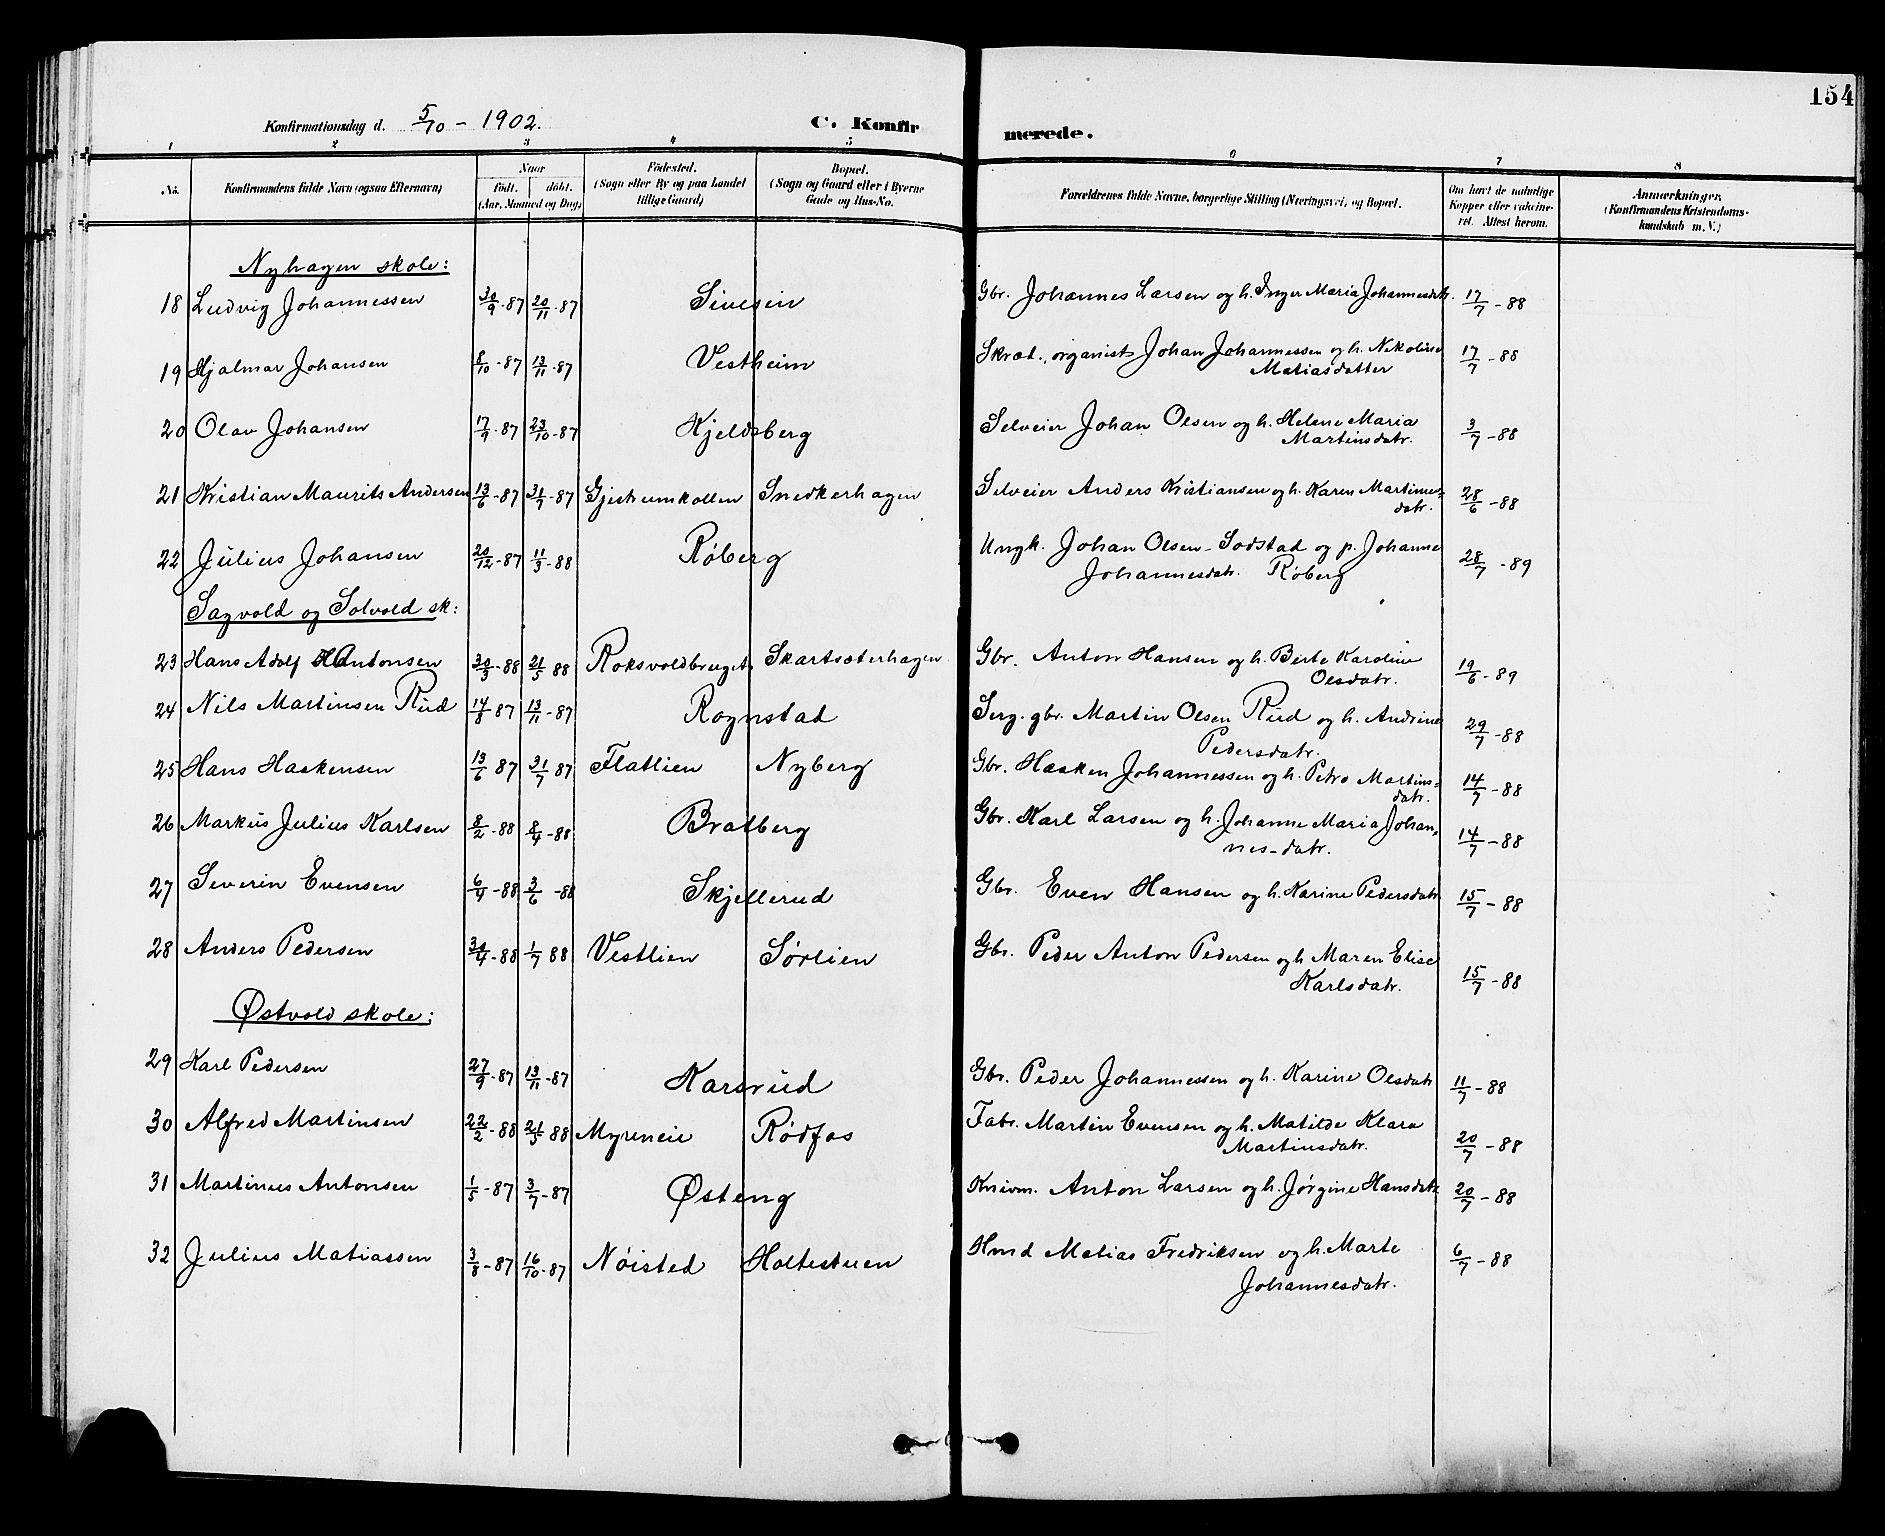 154
Konfirmationsdag d. 5/10 - 1902.
C. Konfirmerede.
1 2 3 4 5 6 7 8
No.
Konfirmandens fulde Navn (ogsaa Efternavn)
Naar
født. døbt.
(Aar, Maaned og Dag)
Fødested.
(Sogn eller By og paa Landet
tillige Gaard)
Bopæl.
(Sogn og Gaard eller i Byerne
Gade og Hus-No.
Forældrenes fulde Navne, borgerlige Stilling (Næringsvei) og Bopæl.
Om havt de naturlige
Kopper eller vakcine-
ret. Attest herom.
Anmærkninger,
(Konfirmandens Kristendoms-
kundskab m. V.)
Nyhagen skole:
18 Ludvig Johannessen 30/9-87 20/11-87 Sivesin Gbr. Johannes Larsen og h. Inger Maria Johannesdatr. 17/7-88
19 Hjalmar Johansen 8/10-87 13/11-87 Vestheim Skræd., organist Johan Johannessen og h. Nikoline 17/7-88
Matiasdatter
20 Olav Johansen 17/9-87 23/10-87 Kjeldsberg Selveier Johan Olsen og h. Helene Maria 3/7-88
Martinsdatr.
21 Kristian Maurits Andersen 13/6-87 31/7-87 Gjestrumkollen Snedkerhagen Selveier Anders Kristiansen og h. Karen Martines- 28/6-88
datr.
22 Julius Johansen 20/12-87 11/3-88 Røberg Ungk. Johan Olsen-Sodstad og p. Johanne 28/7-89
Johannesdatr. Røberg
Sagvold og Solvold sk:
23 Hans Adolf Antonsen 30/3-88 21/5 88 Roksvoldbruget Skartsæterhagen Gbr. Anton Hansen og h. Berte Karoline 19/6-89
Olsdatr.
24 Nils Martinsen Rud 14/8-87 13/11-87 Rognstad Serg. gbr. Martin Olsen Rud og h. Andrine 29/7-88
Pedersdatr.
25 Hans Haakensen 13/6 87 31/7 87 Flatlien Nyberg Gbr. Haaken Johannessen og h. Petra Martins- 14/7-88
datr.
26 Markus Julius Karlsen 8/2-88 8/4-88 Bratberg Gbr. Karl Larsen og h. Johanne Maria Johan- 14/7-88
nes-datr.
27 Severin Evensen 6/4-88 3/6-88 Skjellerud Gbr. Even Hansen og h. Karine Pedersdatr 15/7-88
28 Anders Pedersen 30/4-88 1/7 88 Vestlien Sørlien Gbr. Peder Anton Pedersen og h Maren Elise 15/7-88
Karlsdatr.
Østvold skole:
29 Karl Pedersen 27/9-87 13/11-87 Karsrud Gbr. Peder Johannessen og h. Karine Olsdatr 11/7-88
30 Alfred Martinsen 22/2-88 21/5 88 Myreneie Rødfos Fabr. Martin Evensen og h. Matilde Klara 20/7-88
Martinsdatr.
31 Martinus Antonsen 1/5-87 3/7-87 Østeng Knivm. Anton Larsen og h. Jørgine Hansdatr 20/7-88
32 Julius Matiassen 3/8-87 16/10-87 Nøisted Holtestuen Hmd Matias Fredriksen og h. Marte 6/7-88
Johannesdatr.